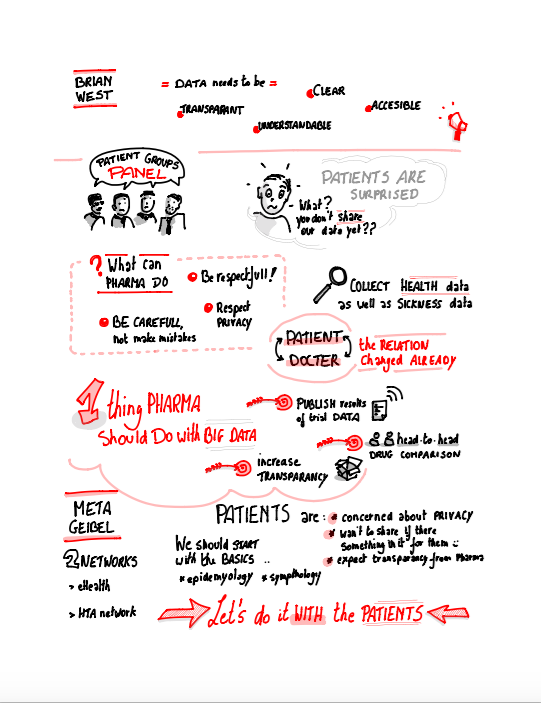 BRIAN
WEST
= DATA needs to be =
CLEAR
TRANSPARANT
ACCESIBLE
UNDERSTANDABLE
PATIENT GROUPS
PANEL
PATIENTS ARE
SURPRISED
What?
you don't share
our data yet??
? What can
PHARMA DO
Be respectfull!
Respect
PRIVACY
BE CAREFULL,
not make mistakes
COLLECT HEALTH data
as well as SICKNESS data
PATIENT
DOCTER
the RELATION
Changed ALREADY
1 thing PHARMA
Should Do with BIG DATA
PUBLISH results
of trial DATA
head-to-head
DRUG COMPARISON
increase
TRANSPARANCY
META
GEIBEL
2 NETWORKS
> eHealth
> HTA network
PATIENTS are:
* concerned about PRIVACY
* want to share if there
something in it for them :)
* expect transparency from Pharma
We should START
with the BASICS ..
* epidemyology * sympthology
Let's do it WITH the PATIENTS